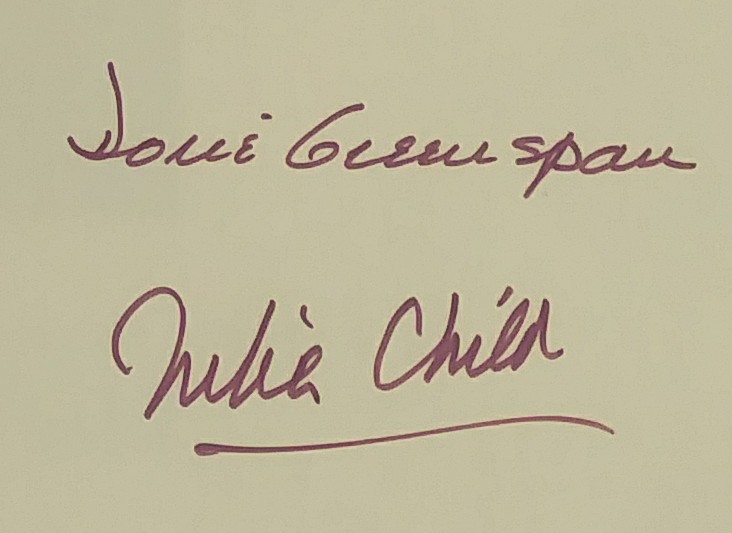 Dorie Greenspan
Julia Child